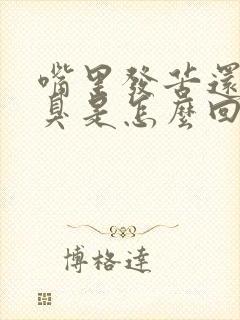 嘴里發苦還
臭是怎麼回
博格達